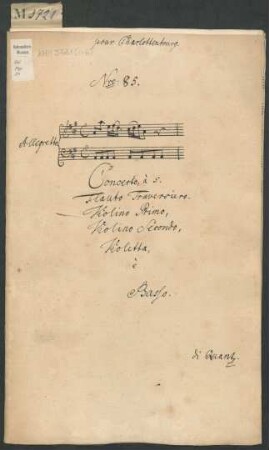 M.5721
pour Charlottenbourg.
Nro: 85.
Allegretto
Concerto, à 5.
Flauto Traversiere.
Violino Primo,
Violino Secondo,
Violetta,
è
Basso.
di Quantz.